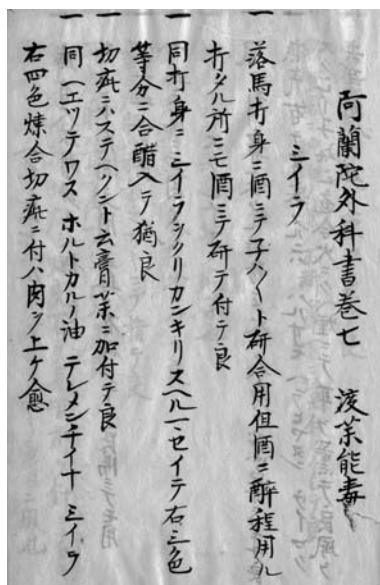 阿蘭陀外科書巻七 渡薬能毒
ミイラ
一 落馬打身ニ酒ニテ子ハ〱ト研合用但酒ニ酔程用ル
打タル所ニモ酒ニテ研テ付テ良
一 同打身ニミイラシクリカンキリスヘル一セイテ右三色
等分ニ合醋入テ猶良
一 切疵ニハステヘント云膏薬ニ加付テ良
一 同一エツテワス ホルトカルノ油 テレメンテイナ ミイラ
右四色煉合切疵ニ付ハ肉ヲ上ケ愈